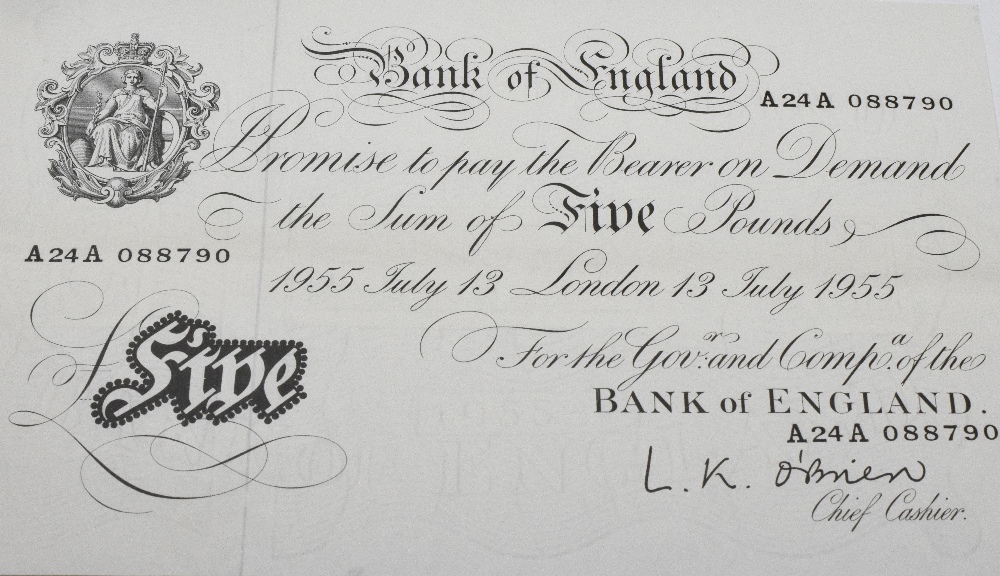 Bank of England
A24A 088790
I Promise to pay the Bearer on Demand
the Sum of Five Pounds
A24A 088790
1955 July 13 London 13 July 1955
£Five
For the Gov.r and Comp.a of the
BANK of ENGLAND.
A24A 088790
L. K. O'Brien
Chief Cashier.